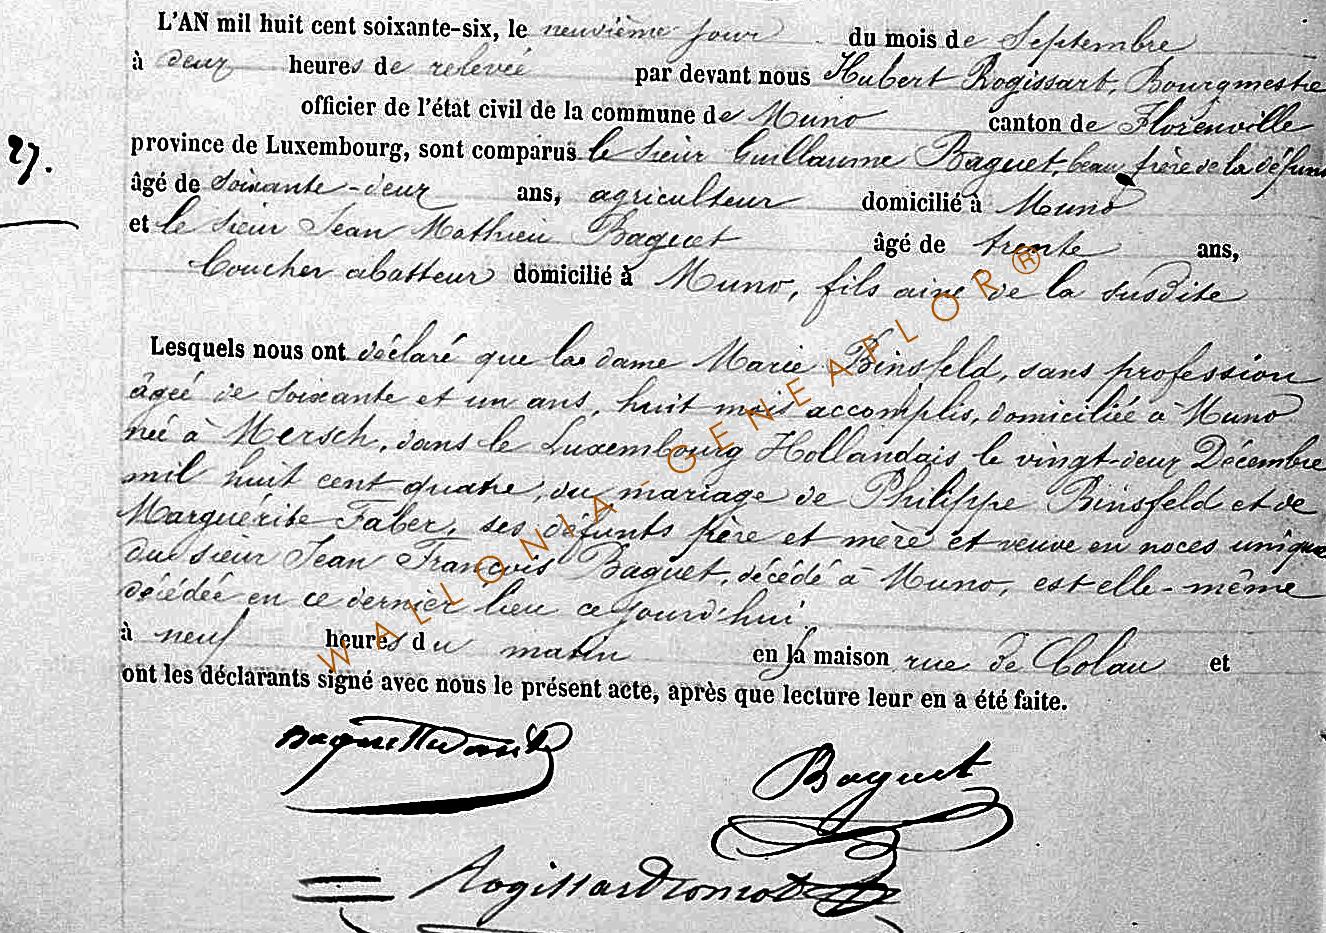 L'AN mil huit cent soixante-six, le neuvième jour du mois de Septembre
à deux heures de relevée par devant nous Hubert Rogissart, Bourgmestre
officier de l'état civil de la commune de Muno canton de Florenville
27. province de Luxembourg, sont comparus le sieur Guillaume Baquet, beau-frère de la défunte
âgé de soixante-deux ans, agriculteur domicilié à Muno
et le sieur Jean Mathieu Baquet âgé de trente ans,
boucher abatteur domicilié à Muno, fils ainé de la susdite
Lesquels nous ont déclaré que la dame Marie Binsfeld, sans profession
âgée de soixante et un ans, huit mois accomplis, domiciliée à Muno
née à Mersch, dans le Luxembourg Hollandais le vingt-deux Décembre
mil huit cent quatre, du mariage de Philippe Binsfeld et de
Marguérite Faber, ses défunts père et mère et veuve en noces uniques
du sieur Jean François Baquet, décédé à Muno, est elle-même
décédée en ce dernier lieu ce jourd'hui
à neuf heures du matin en la maison rue de Colau et
ont les déclarants signé avec nous le présent acte, après que lecture leur en a été faite.
Baquet
WALLONIA - GENEAFLOR®